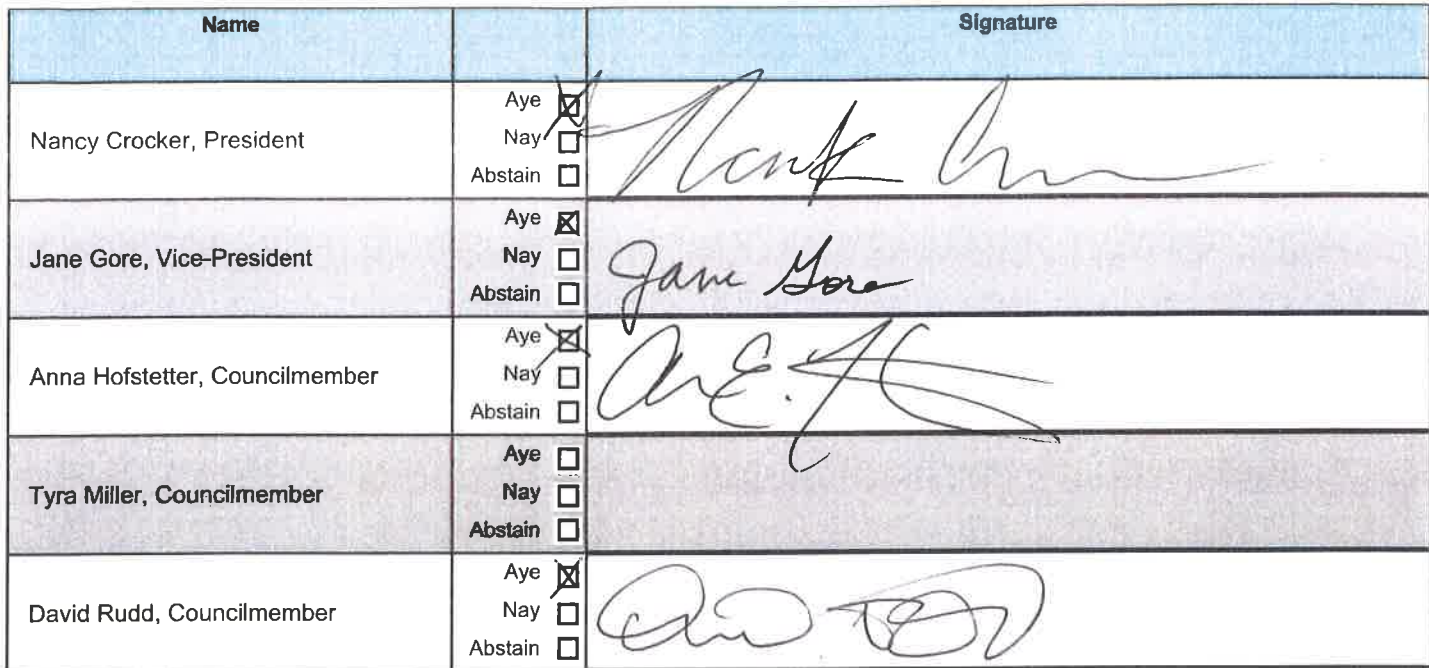 Name Signature
Aye ☒
Nancy Crocker, President Nay ☐
Abstain ☐
Aye ☒
Jane Gore, Vice-President Nay ☐ Jane Gore
Abstain ☐
Aye ☒
Anna Hofstetter, Councilmember Nay ☐
Abstain ☐
Aye ☐
Tyra Miller, Councilmember Nay ☐
Abstain ☐
Aye ☒
David Rudd, Councilmember Nay ☐
Abstain ☐